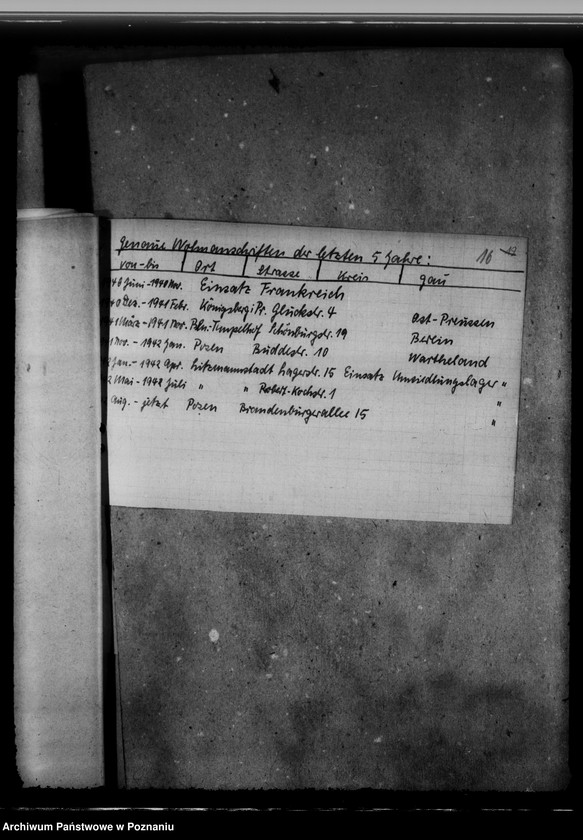 Genaue Wohnanschriften der letzten 5 Jahre: 16
von-bis Ort Strasse Kreis Gau
Juni-1940 Nov. Einsatz Frankreich
Dez.-1941 Febr. Königsberg i. Pr. Gluckstr. 4 Ost-Preussen
März-1941 Nov. Bln.-Tempelhof Schönburgstr. 19 Berlin
Nov.-1942 Jan. Posen Buddestr. 10 Wartheland
Jan.-1942 Apr. Litzmannstadt Lagerstr. 15 Einsatz Umsiedlungslager "
Mai-1942 Juli " " Robert-Kochstr. 1 "
Aug.-jetzt Posen Brandenburgerallee 15 "
Archiwum Państwowe w Poznaniu